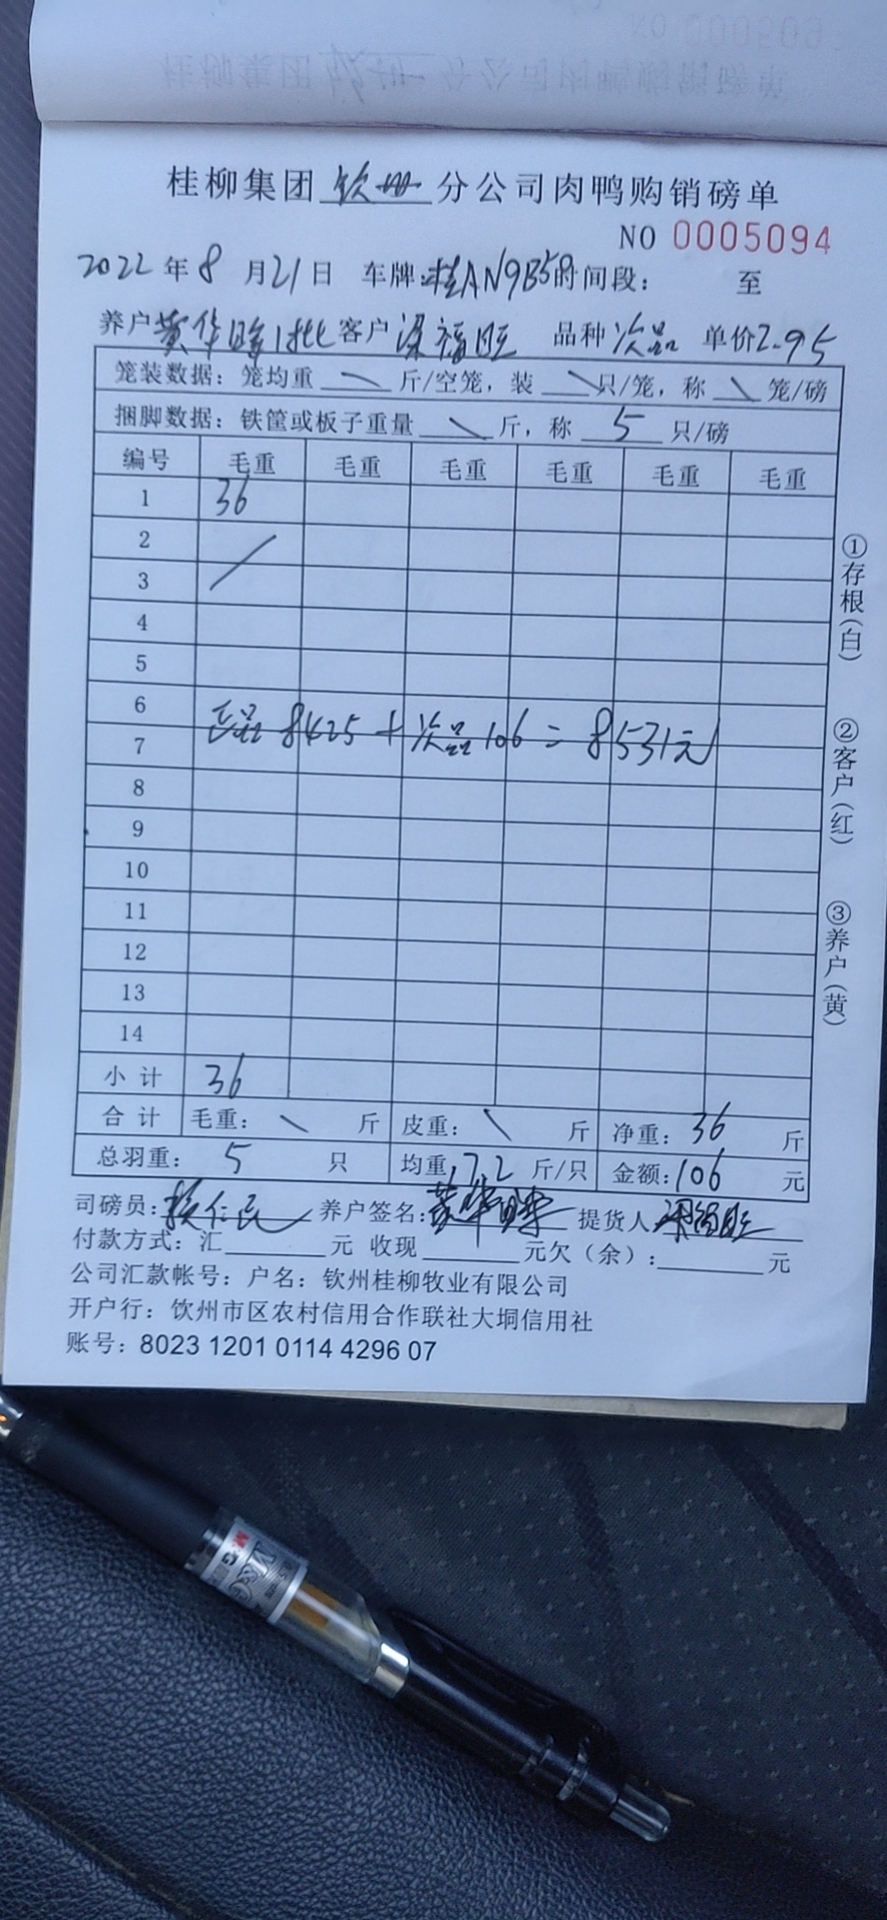 桂柳集团 钦州 分公司肉鸭购销磅单
NO 0005094
2022 年 8 月 21 日 车牌:桂AN9B58 时间段: 至
养户 黄华 1批 客户 梁福旺 品种 次品 单价 2.95
笼装数据:笼均重 \ 斤/空笼,装 \ 只/笼,称 \ 笼/磅
捆脚数据:铁筐或板子重量 \ 斤,称 5 只/磅
编号 毛重 毛重 毛重 毛重 毛重 毛重
1 36
2
3
4
5
6
正品 8425 + 次品 106 = 8531元
7
8
9
10
11
12
13
14
小计 36
合计 毛重: \ 斤 皮重: \ 斤 净重: 36 斤
总羽重: 5 只 均重: 7.2 斤/只 金额: 106 元
司磅员: 仁民 养户签名: 黄华 提货人 梁福旺
付款方式:汇 元 收现 元欠(余): 元
公司汇款帐号:户名:钦州桂柳牧业有限公司
开户行:钦州市区农村信用合作联社大垌信用社
账号:8023 1201 0114 4296 07
①存根(白)
②客户(红)
③养户(黄)